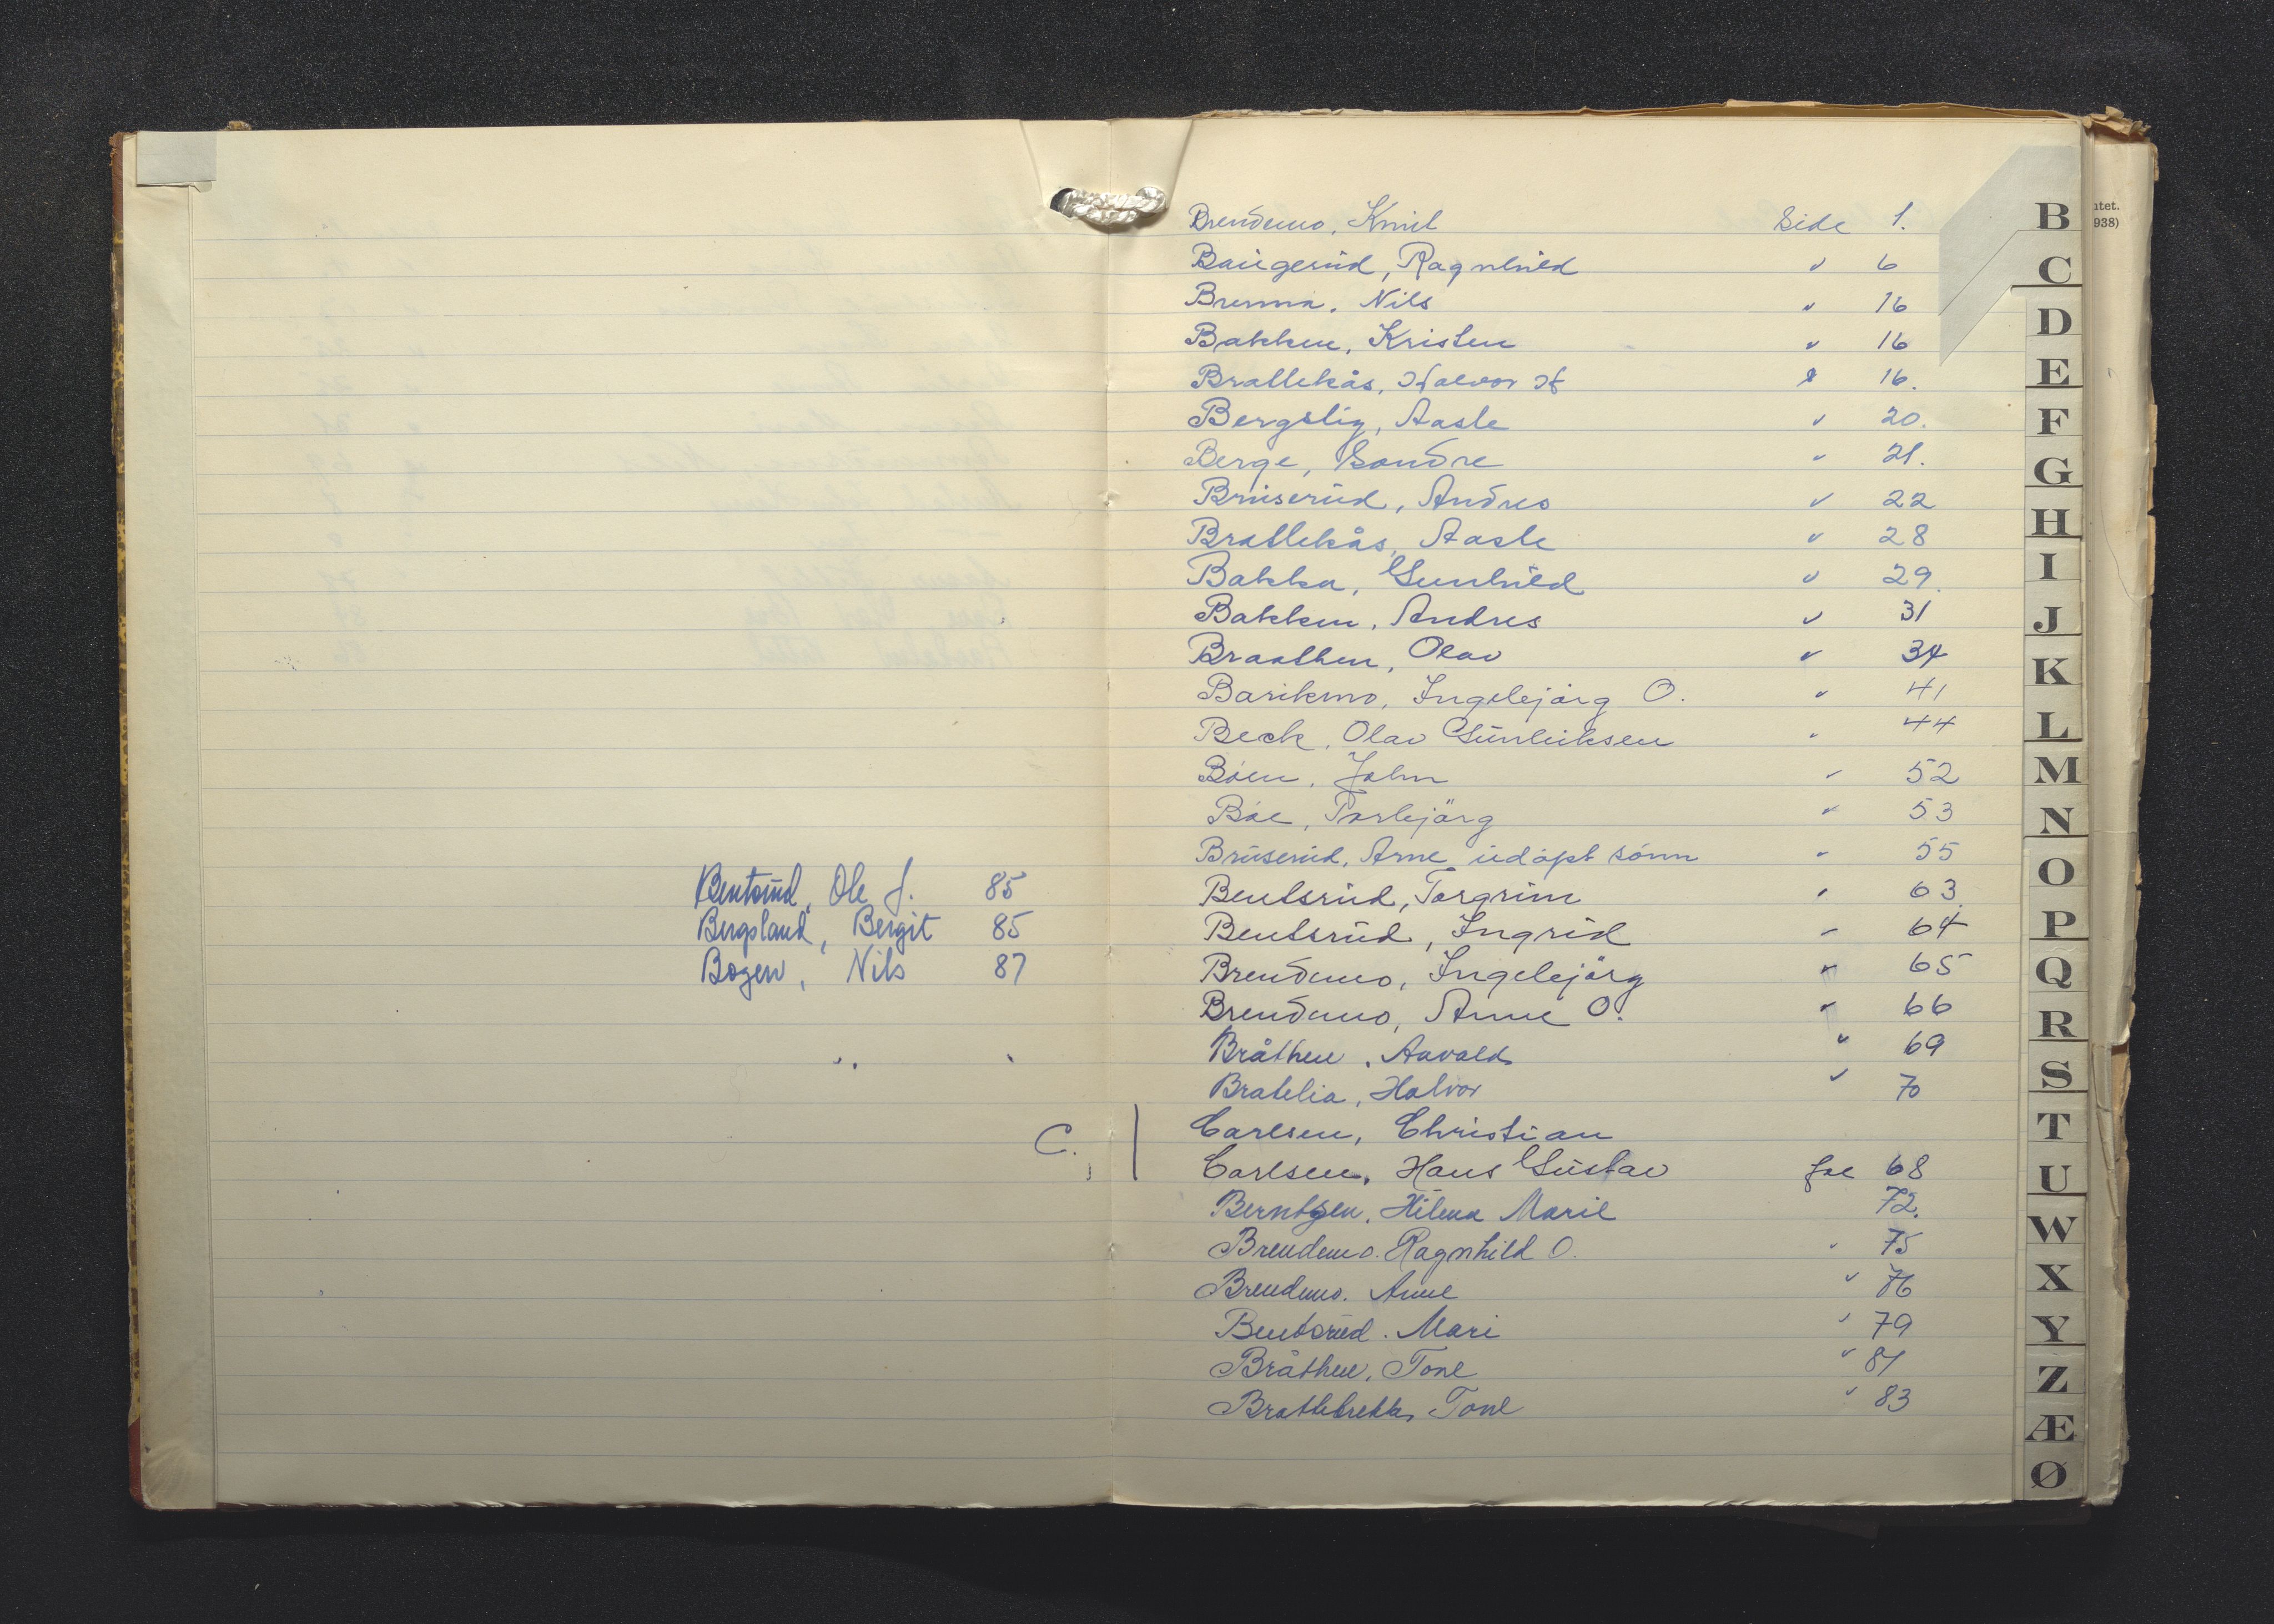 Bentsrud, Ole J. 85
Bergsland, Bergit 85
Bogen, Nils 87
C.
Brendemo, Knut Side 1.
Baugerud, Ragnhild " 6
Bremna, Nils " 16
Bakken, Kristen " 16
Brattekås, Halvor H " 16.
Bergslig, Aasle " 20.
Berge, Sondre " 21.
Bruserud, Andres " 22
Brattekås, Aasle " 28
Bakka, Gunhild " 29.
Bakken, Andres " 31
Braathen, Olav " 34
Barikmo, Ingebjørg O. " 41
Beck, Olav Gunleiksen " 44
Bøen, John " 52
Bøe, Torbjørg " 53
Bruserud, Arne udøpt sønn " 55
Bentsrud, Torgrim " 63.
Bentsrud, Ingrid " 64
Brendemo, Ingebjørg " 65
Brendemo, Anne O. " 66
Bråthen, Aavald " 69
Bratelia, Halvor " 70
Carlsen, Christian
Carlsen, Hans Gustav 68
Berntsen, Hilma Marie 72.
Brendemo. Ragnhild O. " 75
Brendemo. Anne " 76
Bentsrud. Mari " 79
Bråthen, Tone " 81
Brattebrekke, Tone " 83
B
C
D
E
F
G
H
I
J
K
L
M
N
O
P
Q
R
S
T
U
W
X
Y
Z
Æ
Ø
ntet.
938)